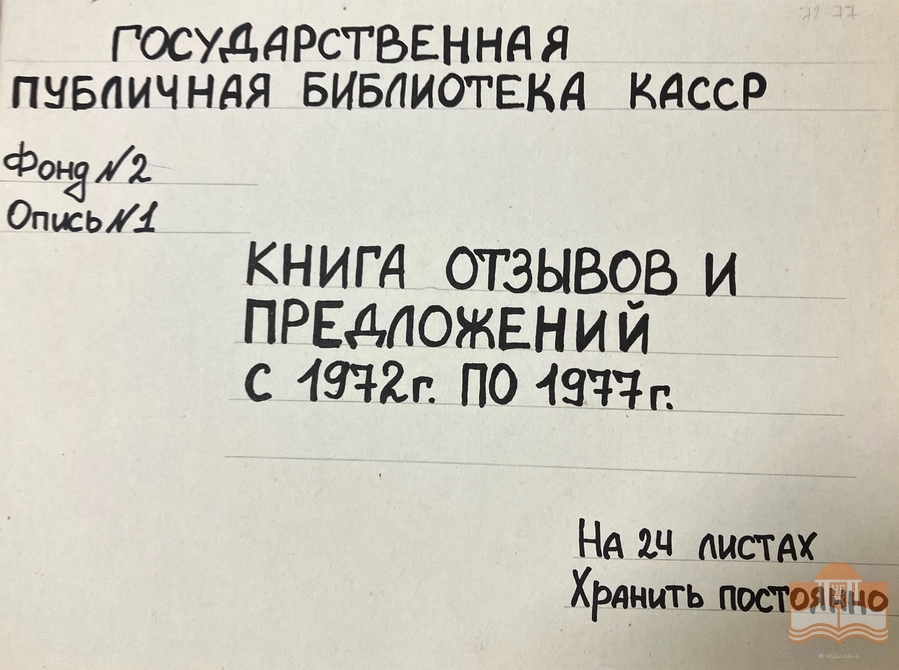 72-77
ГОСУДАРСТВЕННАЯ
ПУБЛИЧНАЯ БИБЛИОТЕКА КАССР
Фонд №2
Опись №1
КНИГА ОТЗЫВОВ И
ПРЕДЛОЖЕНИЙ
С 1972г. ПО 1977г.
На 24 листах
Хранить постоянно